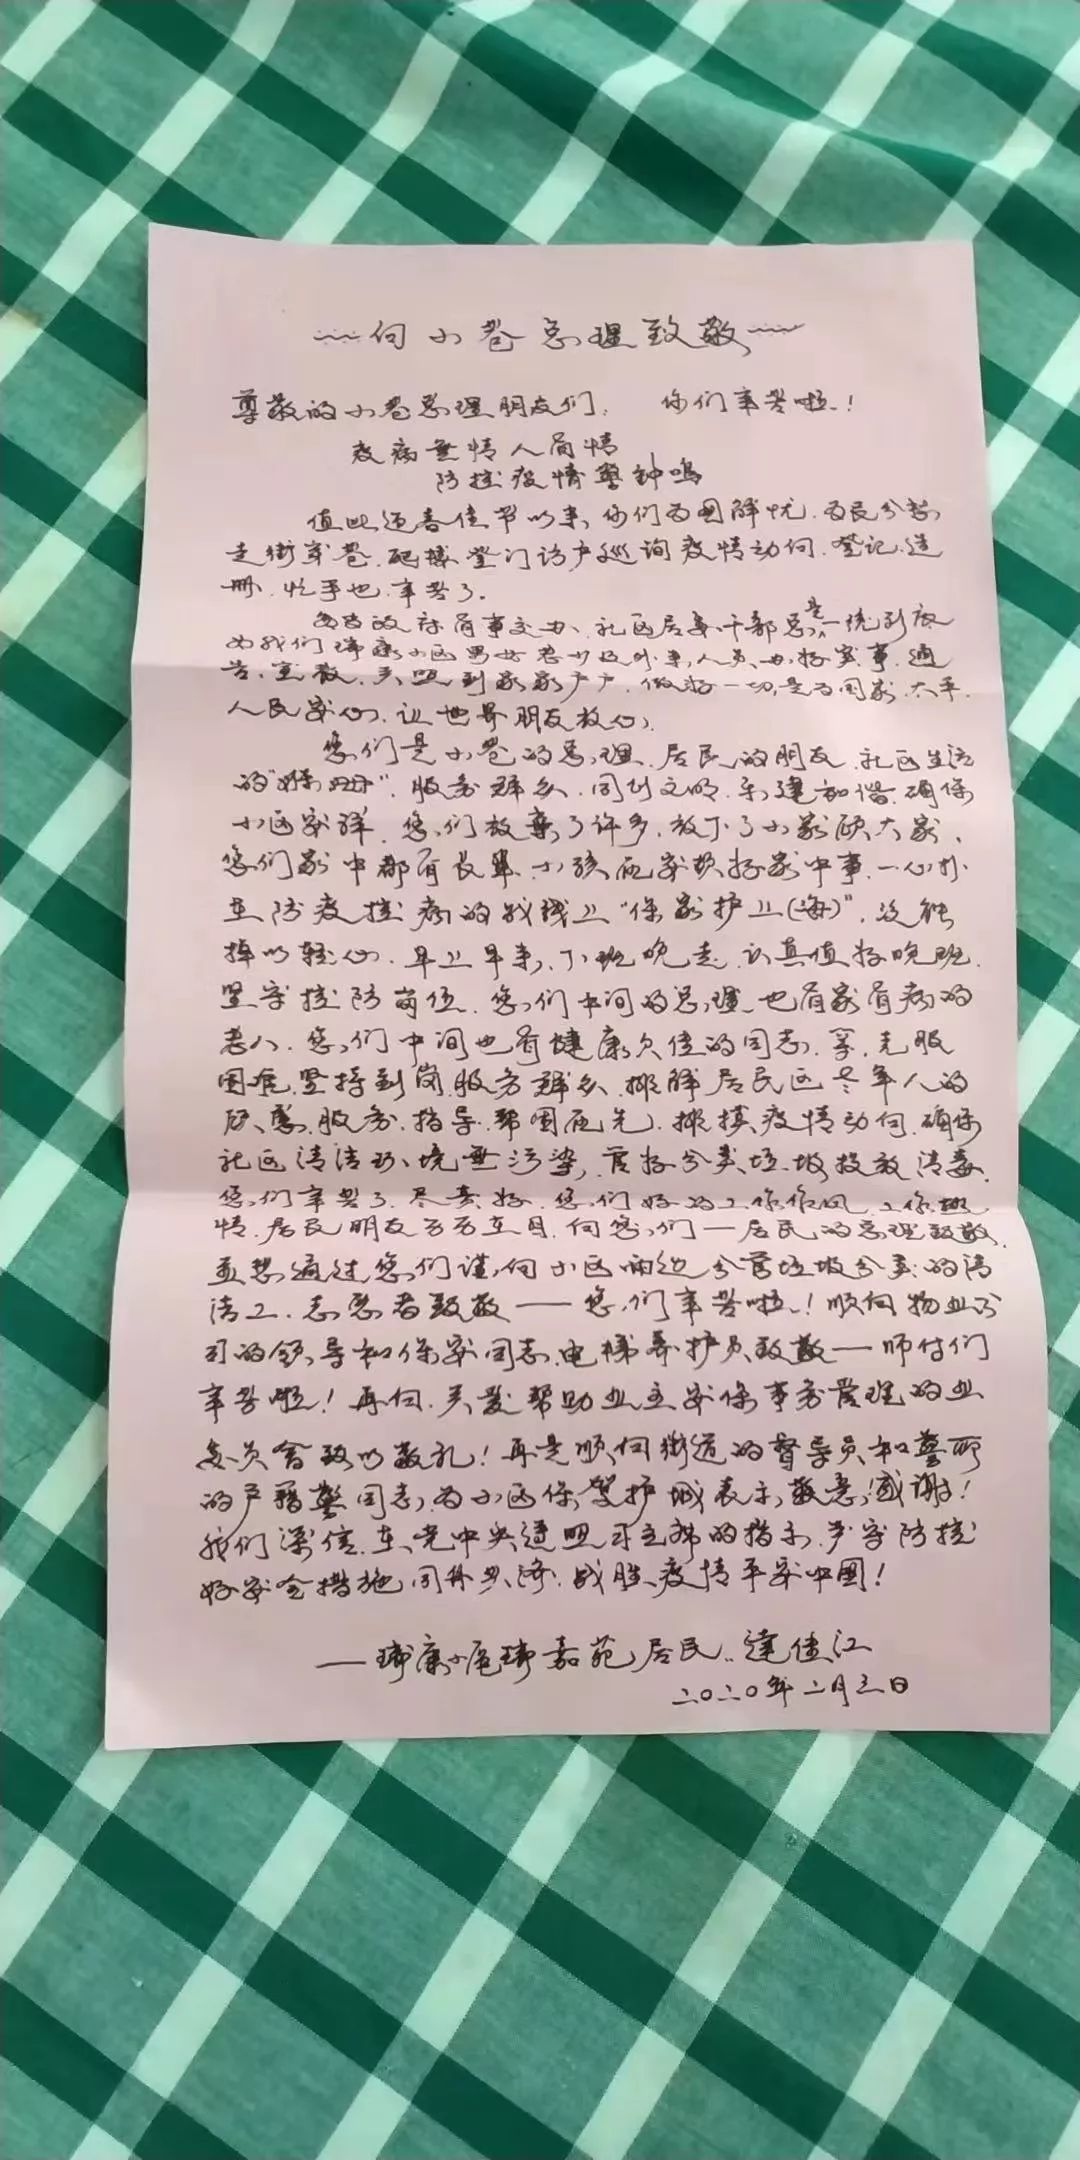 ~~~向小巷总理致敬~~~
尊敬的小巷总理朋友们: 你们辛苦啦!
疫病無情人间情
防控疫情警钟鸣
值此迎春佳节以来,你们为国解忧.为民分愁,
走街穿巷、登门访户巡询疫情动向.登记.造
册.忙乎也.辛苦了.
政府有事交办.社区居委干部总是一统到底
为我们瑋康小区男女老少及外来人员,办好实事.通
告.宣教.关照到家家户户.做好一切,是为国家.太平.
人民安心.让世界朋友放心.
您们是小巷的总理.居民的朋友.社区生活
的"保姆".服务群众.同创文明.共建和谐.确保
小区安详.您们放弃了许多.放下了小家顾大家.
您们家中都有长辈.小孩 安顿好家中事.一心扑
在防疫控病的战线上"保家护上(海)".没能
掉以轻心.早上早来、下班晚走.认真值好晚班.
坚守控防岗位.您们中间的总理.也有家有病的
老人.您们中间也有健康欠佳的同志.等.克服
困难.坚持到岗.服务群众.排解居民区老年人的
服务.指导.帮困 先.排摸疫情动向.确保
社区清洁环境無污染,管好分类垃圾投放清毒.
您们辛苦了.尽责好.您们好的工作作风.工作热
情.居民朋友历历在目.向您们——居民的总理致敬.
并想通过您们谨向小区两边分管垃圾分类的清
洁工.志愿者致敬——您们辛苦啦!顺向物业公
司的领导和保安同志.电梯养护员致敬——师付们
辛苦啦!再向.关爱帮助业主安保事务管理的业
委员会致以敬礼!再是顺向街道的督导员和警所
的户籍警同志,为小区保驾护城表示敬意!感谢!
我们深信.在党中央遵照习主席的指示.严守防控
好安全措施.同舟共济.战胜疫情平安中国!
——瑋康小区瑋嘉苑居民:達佳江
二〇二〇年二月三日